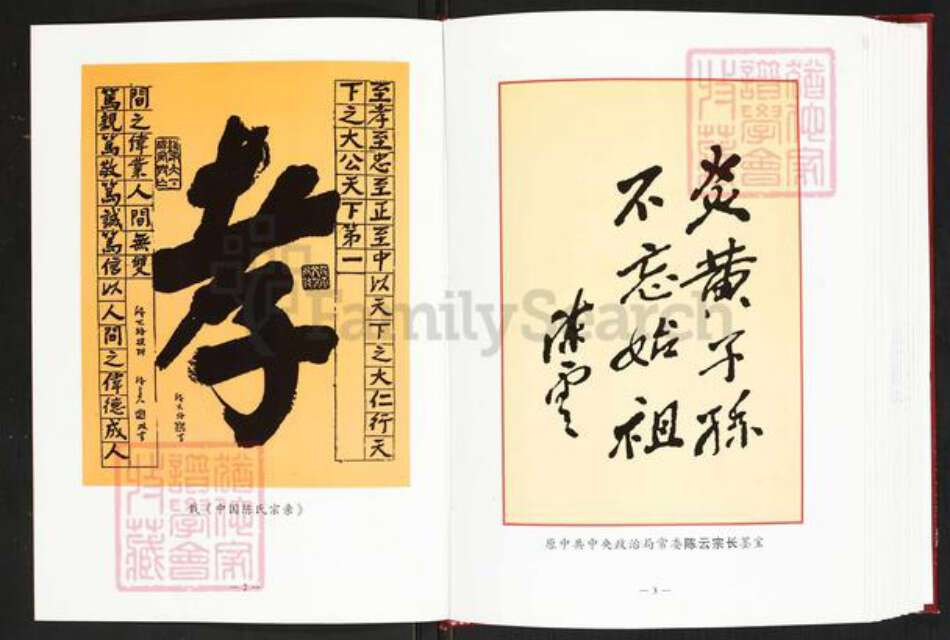 至孝至忠至正至中以天下之大仁行天
下之大公天下第一
孝
間之偉業人間無雙
篤親篤敬篤誠篤信以人間之偉德成人
載《中国陈氏宗亲》
— 2 —
炎黄子孙
不忘始祖
陈云
原中共中央政治局常委陈云宗长墨宝
— 3 —
猶他家
譜學會
收藏
猶他家
譜學會
收藏
FamilySearch